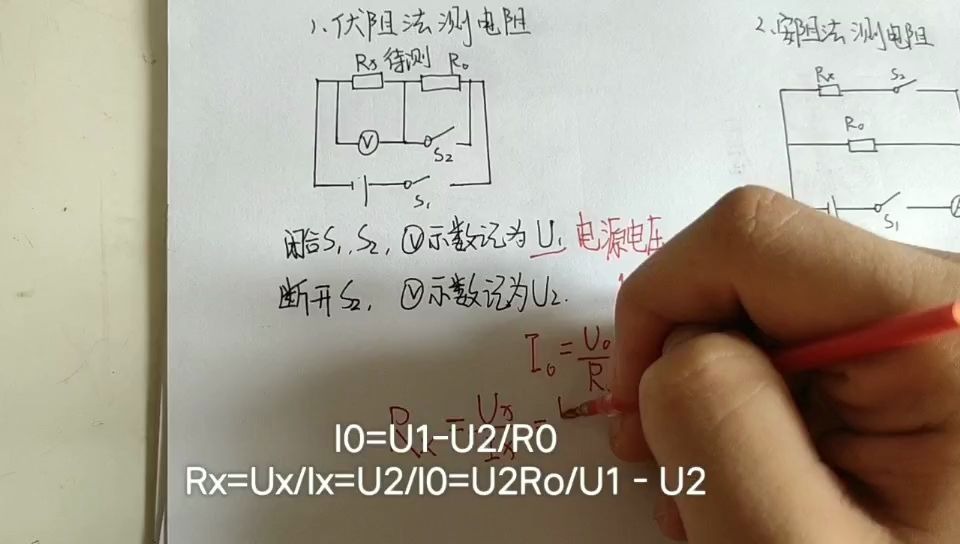 1、伏阻法测电阻
Rx 待测 R0
V
S2
S1
闭合S1、S2, V示数记为U1 电源电压
断开S2, V示数记为U2.
I0=U0/R
Rx=Ux/Ix=
2、安阻法测电阻
Rx S2
R0
S1
A
I0=U1-U2/R0
Rx=Ux/Ix=U2/I0=U2Ro/U1 - U2